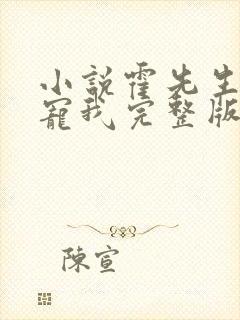 小説霍先生
寵我完整版
陳宣